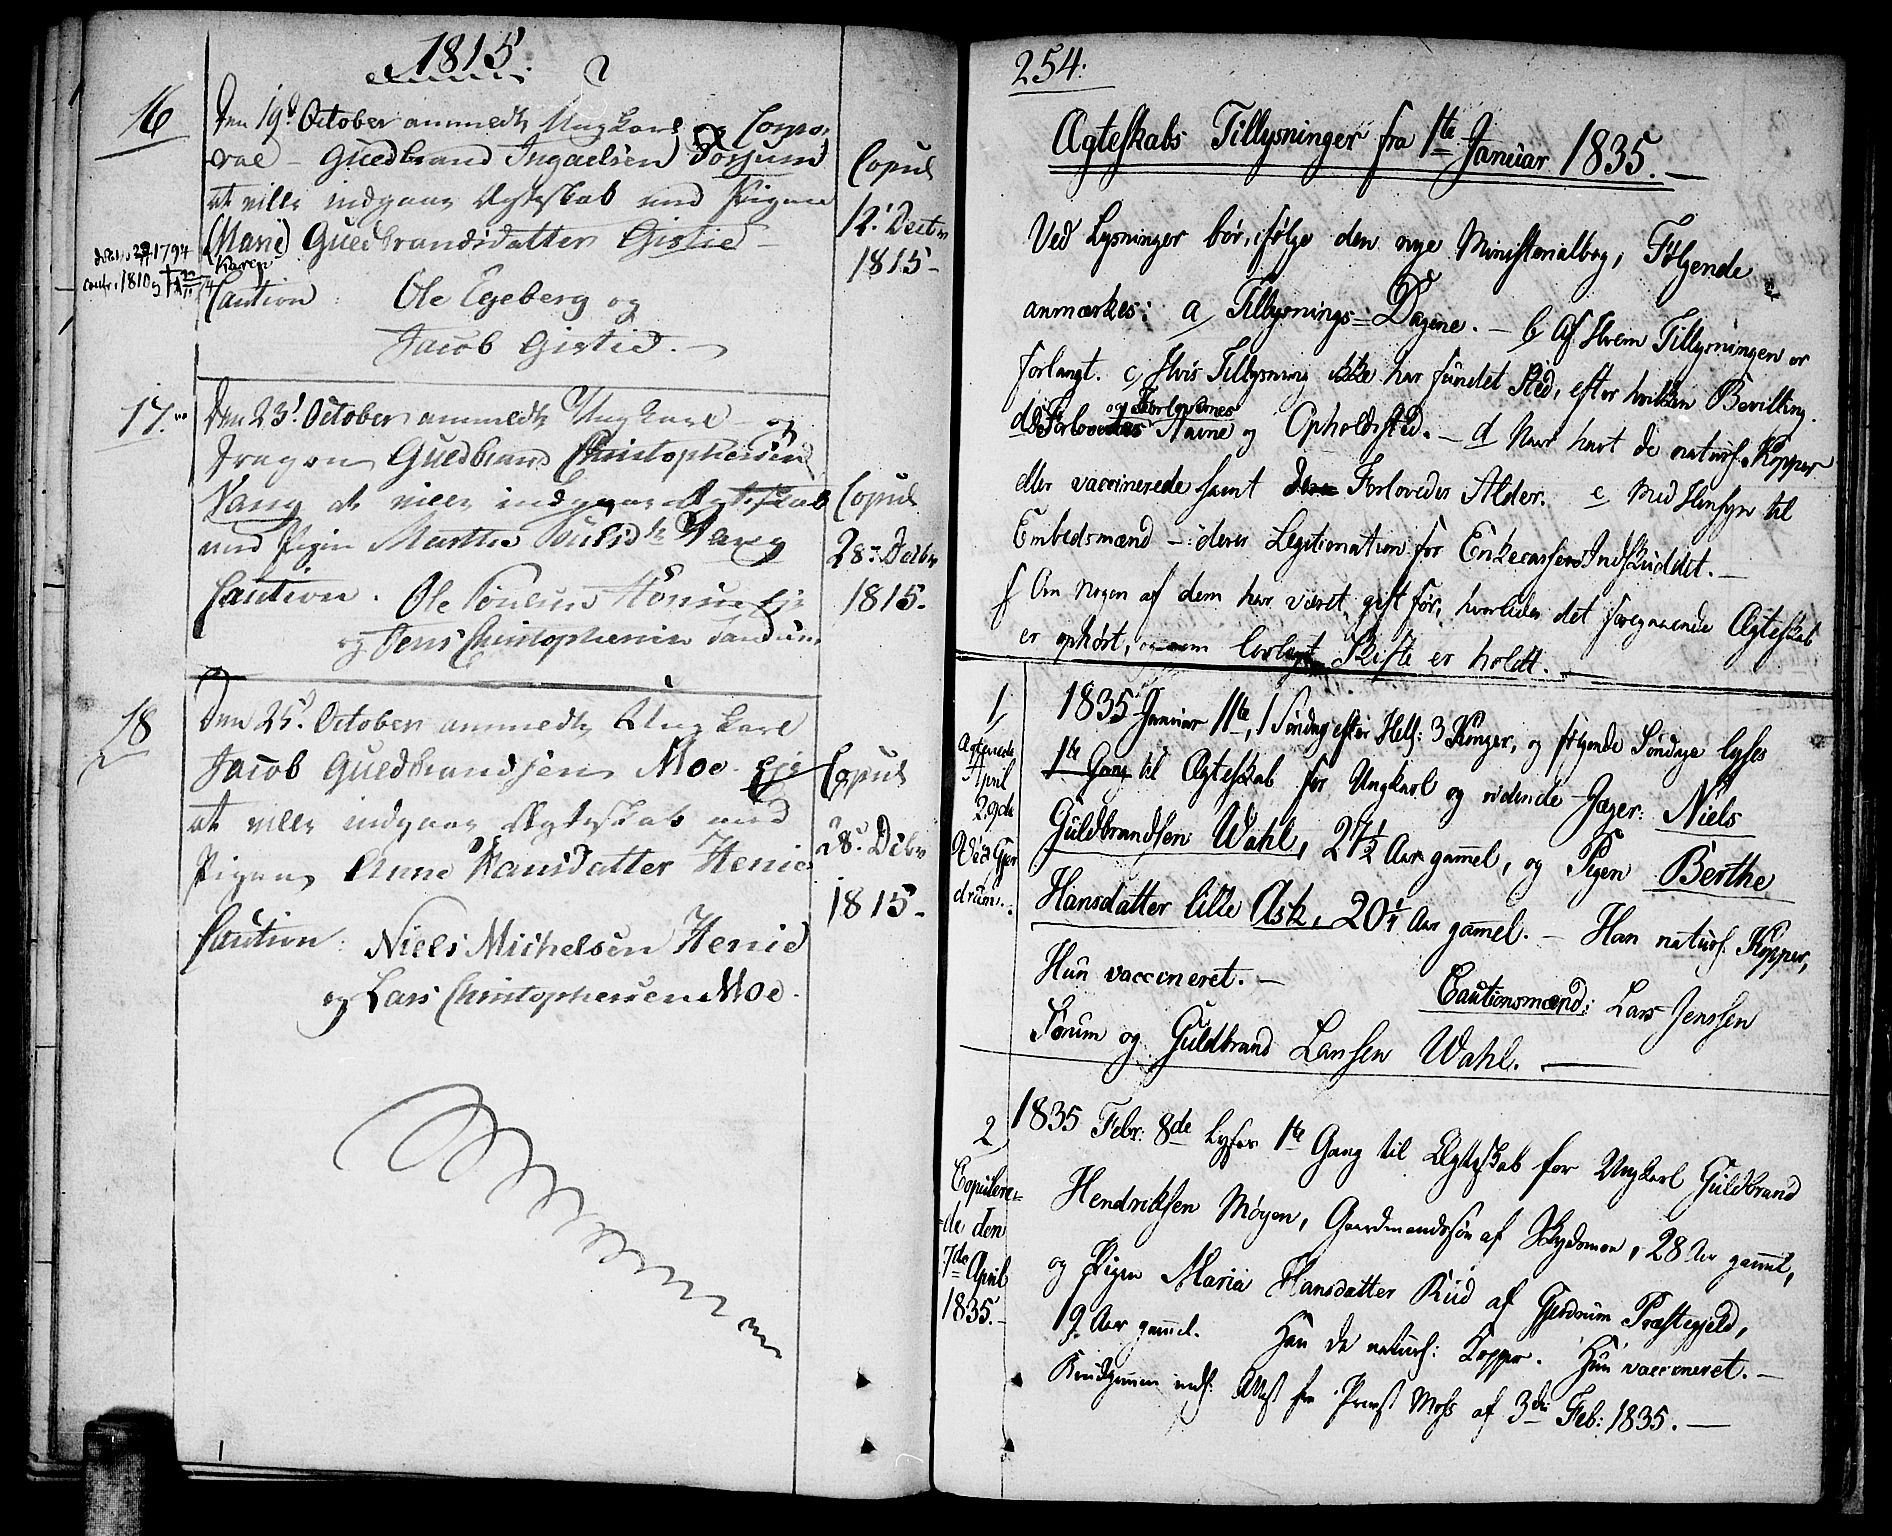 1815
16
Den 19d October anmeldte Ungkarl og Corpo-
ral - Guldbrand Ingaelsen
at ville indgaae Ægteskab med Pigen
(Marie) Guldbrandsdatter Gistie -
Karen
Caution: Ole Egeberg og
Jacob Gistie. -
Copul
12' Decbr
1815 -
17.
Den 23d October anmeldte Ungkarl - og
Dragon Guldbrand Christophersen
Vang at ville indgaae Ægteskab
med Pigen Marthe Poulsdtr
Caution. Ole
og Jens Christophersen
Copul
28 - Decbr
1815.
18
Den 25d October anmeldte Ungkarl
Jacob Guldbrandsen Moe - Eje
at ville indgaae Ægteskab med
Pigen Anne Hansdatter Henie
Caution: Niels Michelsen Henie
og Lars Christophersen Moe.
Copul
28. Decbr
1815 -
254.
Ægteskabs Tillysninger fra 1te Januar 1835. -
Ved Lysninger bør, ifølge den nye Ministerialbog, Følgende
anmærkes: a, Tillysnings-Dagene. - b, Af Hvem Tillysningen er
forlangt. c, Hvis Tillysning ikke har fundet Sted, efter hvilken Bevilling.
og Forlovernes
de Forlovedes Navne og Opholdsted. - d Naar havt de naturl. Kopper
eller vaccinerede samt Forlovedes Alder. e Med Hensyn til
Embedsmænd - deres Legitimation for Enkecassens Indskuddet. -
f Om Nogen af dem har været gift før, hvorledes det foregaaende Ægteskab
er ophørt, og om lovligt Skifte er holdt. -
1,
April
29de
Ved Gjer
drum.
1835 Januar 11te, 1 Søndag efter Hell: 3 Konger, og følgende Søndage lyses
1te Gang til Ægteskab for Ungkarl og ridende Jæger: Niels
Guldbrandsen Wahl, 27½ Aar gammel, og Pigen Berthe
Hansdatter lille Ask, 20¼ Aar gammel. - Han naturl. Kopper,
Hun vaccineret. - Cautionsmænd: Lars Jenssen
Sørum og Guldbrand Larssen Wahl. -
2
Copulere-
de den
7de April
1835. -
1835 Febr: 8de lyses 1te Gang til Ægteskab for Ungkarl Guldbrand
Hendriksen Møyen, Gaardmandssøn af Skydsmoe, 28 Aar gammel,
og Pigen Maria Hansdatter Rud af Gjerdrum Præstegjeld,
19 Aar gammel. Han de naturl: Kopper. Hun vaccineret. -
Brudgommen indl: Attest fra Præst Moss af 3die Feb: 1835. -